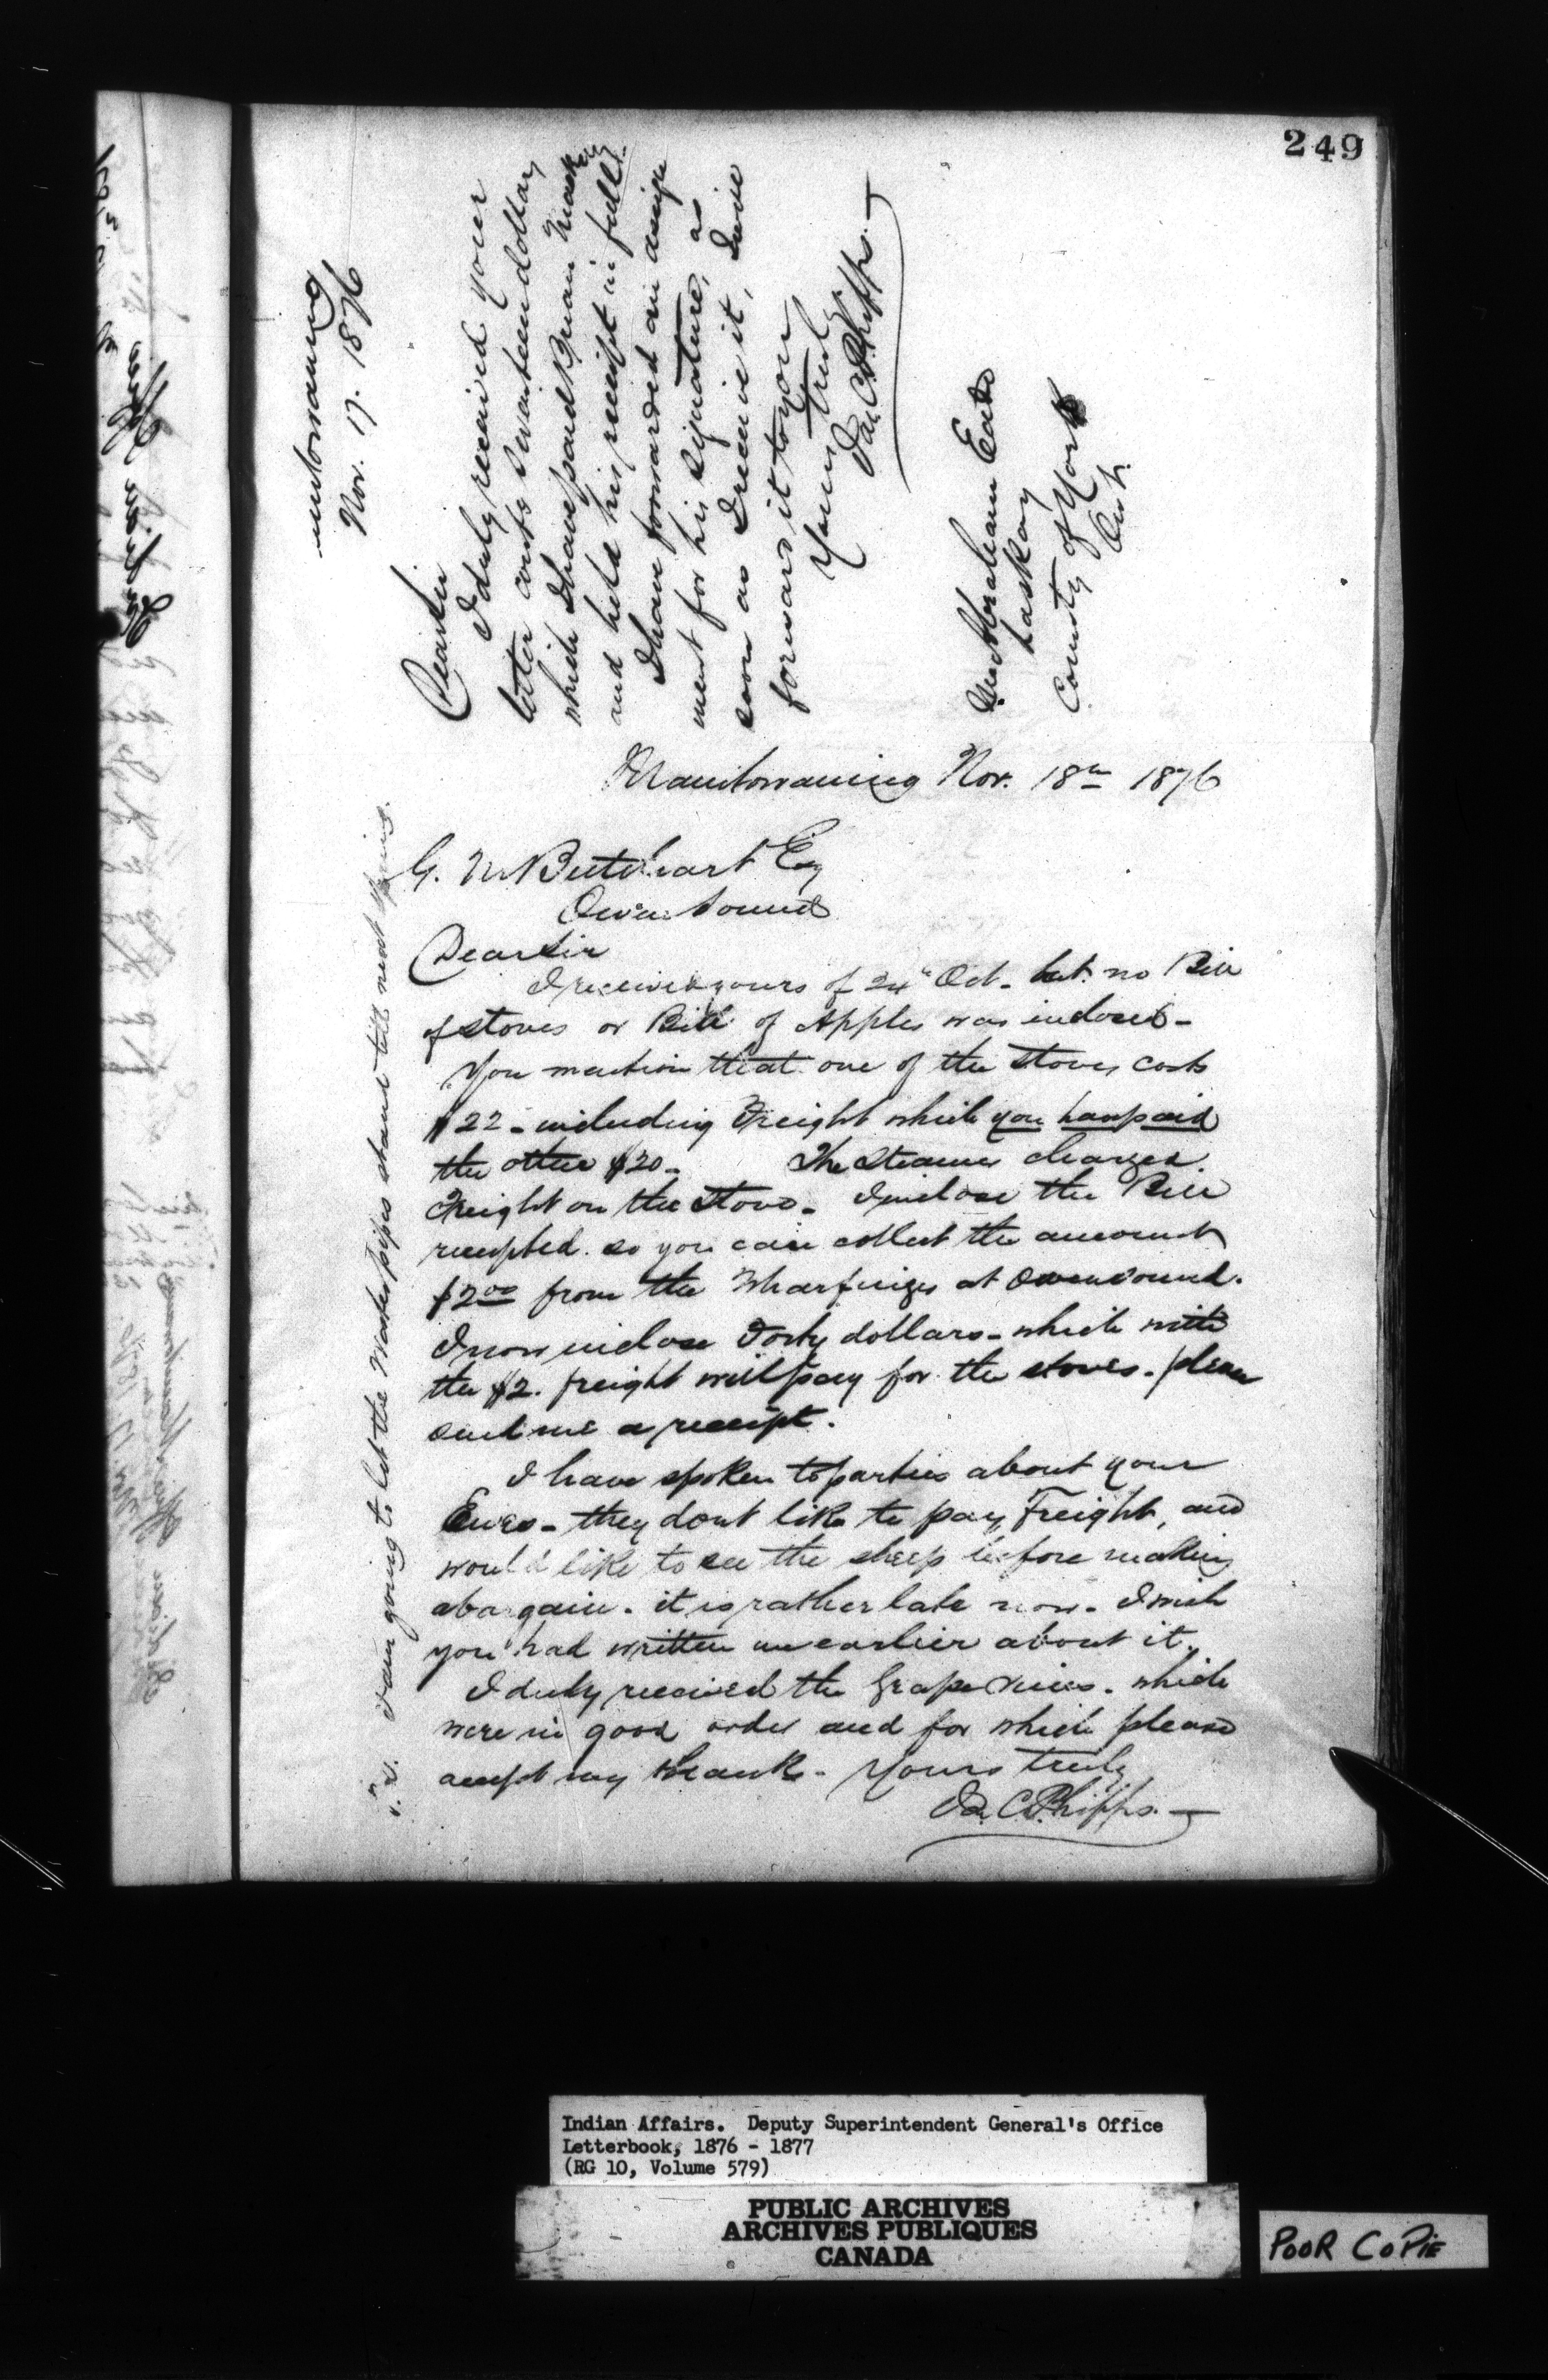 249
Manitowaning
Nov. 17. 1876
Dear Sir
I duly received your
letter conts seventeen dollars
which I have paid Bryan Mackay
and held his receipt in full.
I have forwarded an assign
ment for his signature, as
soon as I receive it, I will
forward it to you
Yours truly
Jas. C. Phipps.
Mr Abraham Eado
Laskay
County of York
Ont.
Manitowaning Nov. 18th 1876
G. M Butchart Esq
Owen Sound
Dear Sir
I received yours of 24" Oct. but no Bill
of stoves or Bill of Apples was inclosed -
You mention that one of the stoves costs
$22 - including Freight which you have paid
the other $20 - The Steamer charged
Freight on the Stove - I inclose the Bill
receipted. so you can collect the amount
$2.00 from the Wharfinger at Owen Sound.
I now inclose Forty dollars - which with
the $2. freight will pay for the stoves - please
send me a receipt.
I have spoken to parties about your
Ewes - they dont like to pay Freight, and
would like to see the sheep before making
a bargain - it is rather late now - I wish
you had written me earlier about it.
I duly received the Grape Vines - which
were in good order and for which please
accept my thanks - Yours truly
Jas. C. Phipps.
P.S. I am going to let the Water pipes stand till next Spring.
Indian Affairs. Deputy Superintendent General's Office
Letterbook, 1876 - 1877
(RG 10, Volume 579)
PUBLIC ARCHIVES
ARCHIVES PUBLIQUES
CANADA
POOR COPIE